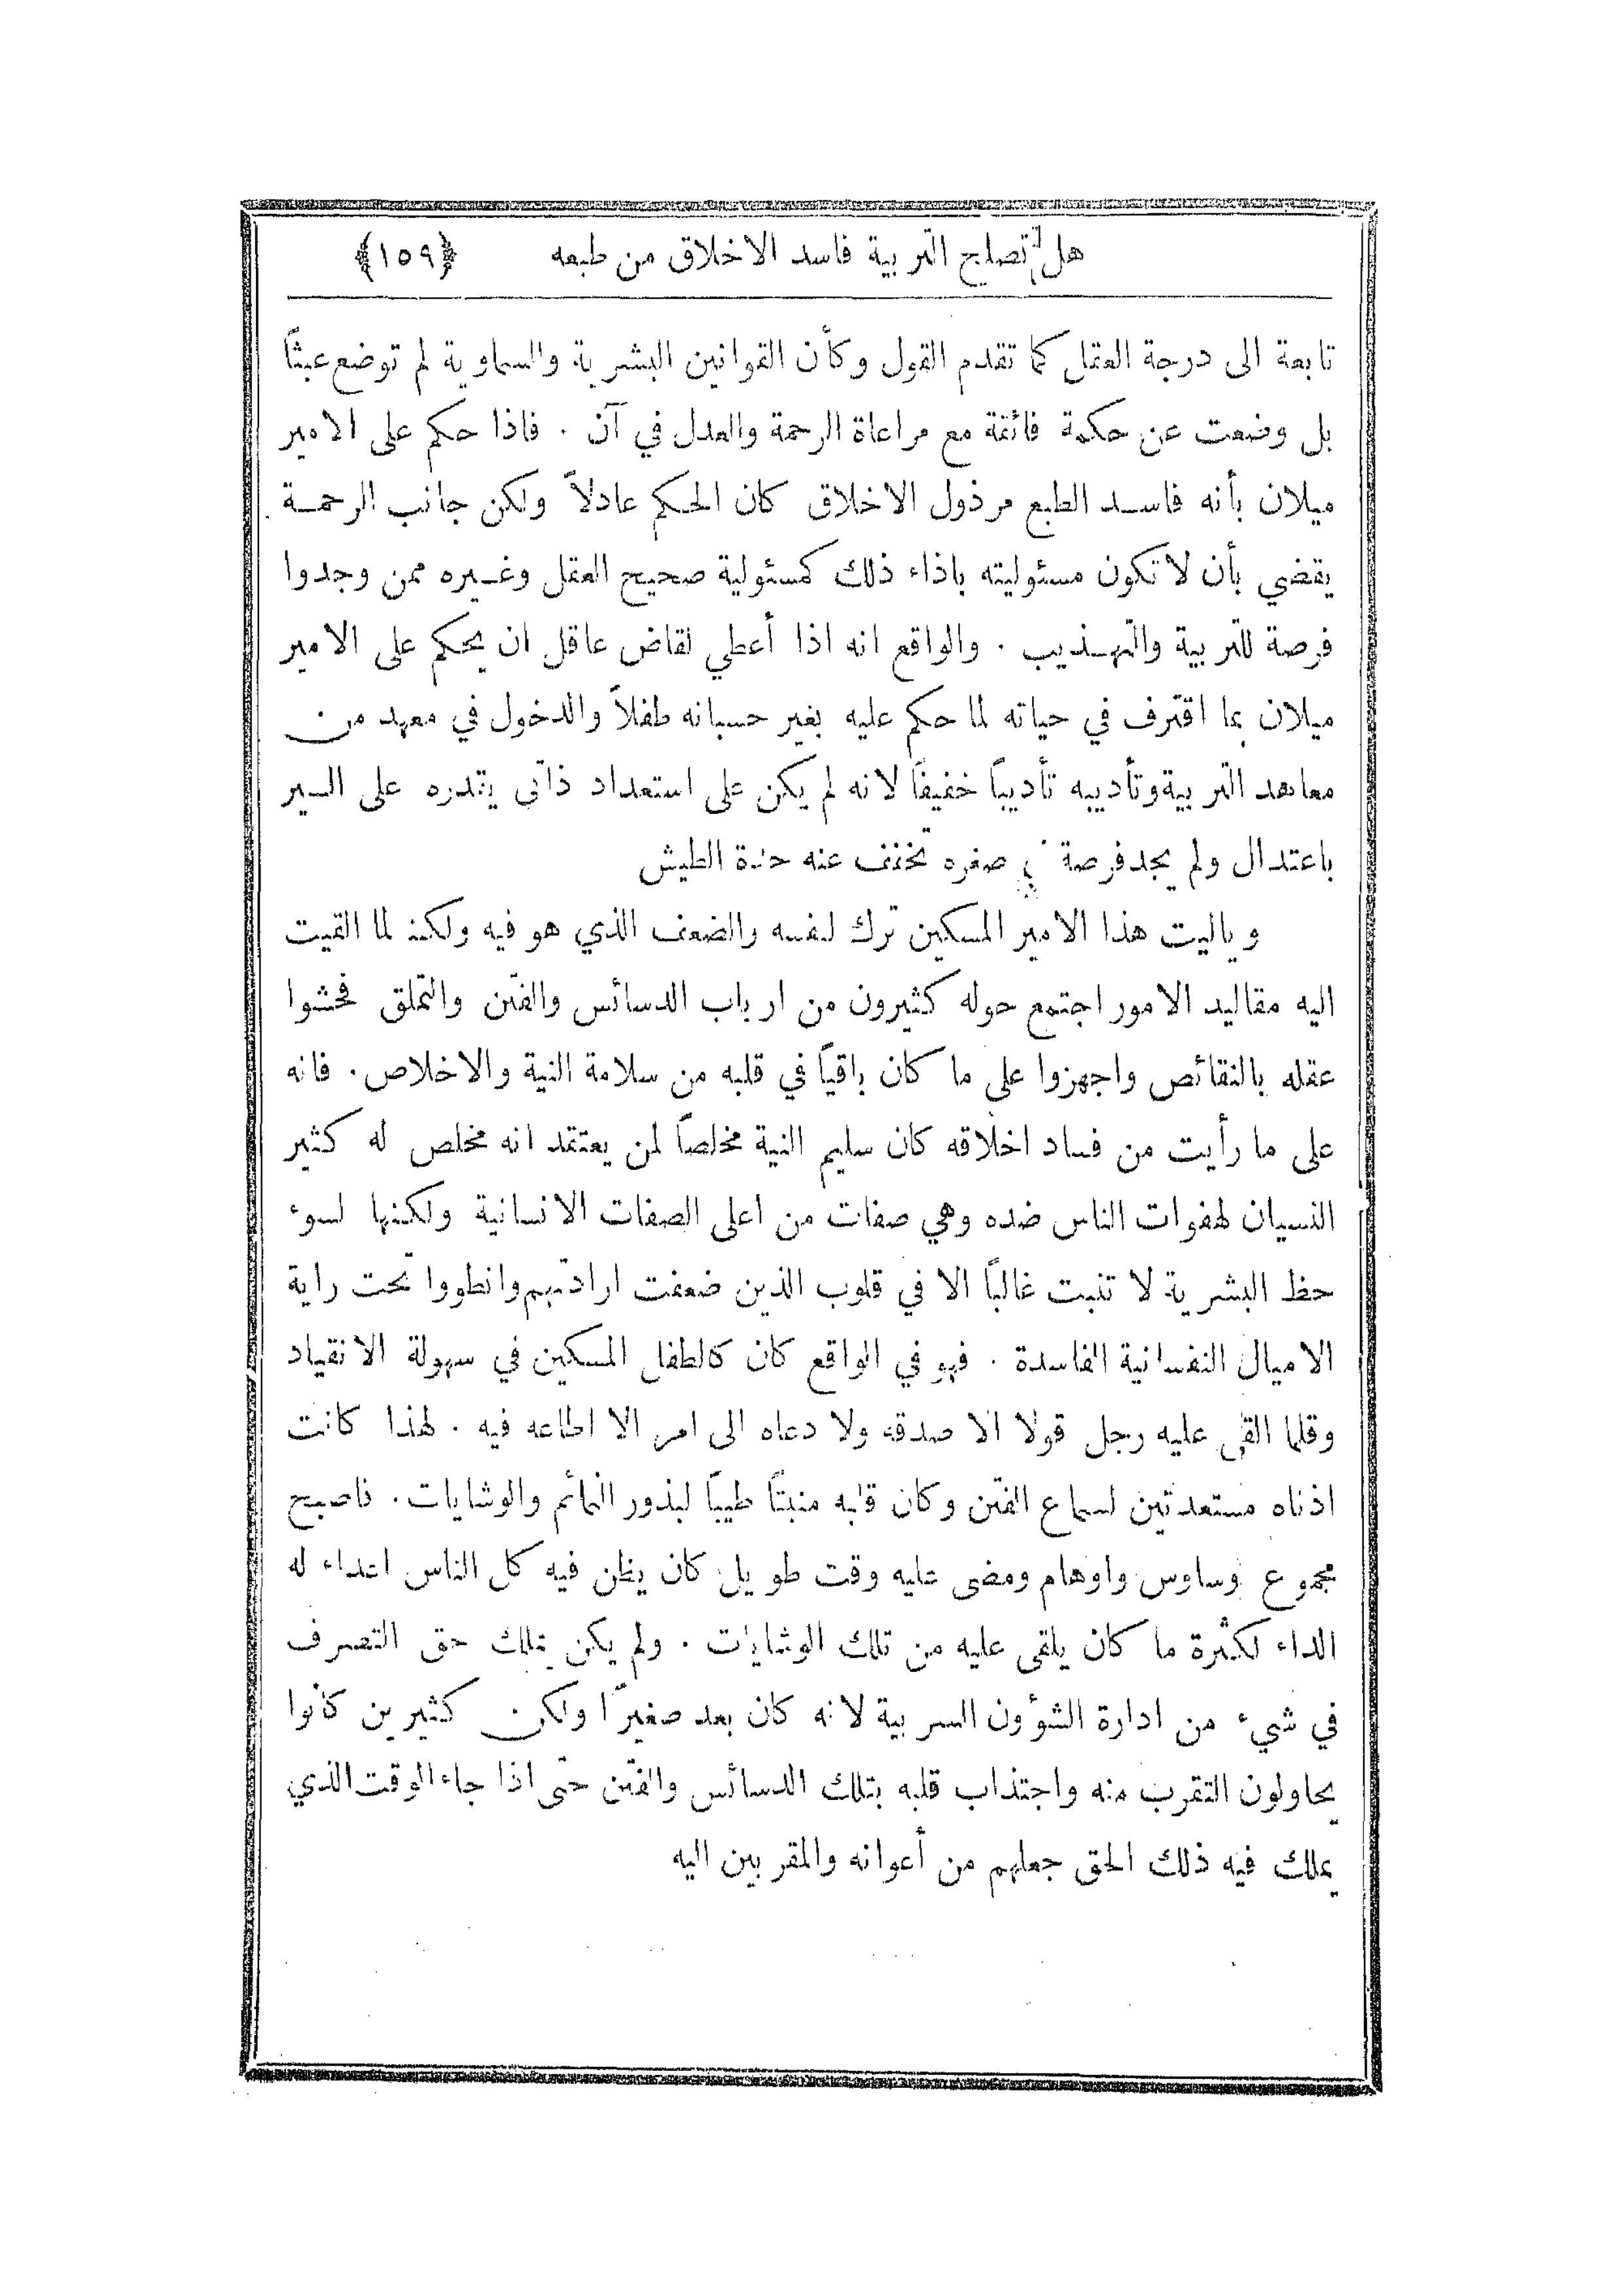 هل تصلح التربية فاسد الاخلاق من طبعه ﴿١٥٩﴾
تابعة الى درجة العقل كما تقدم القول وكأن القوانين البشرية والسماوية لم توضع عبثاً
بل وضعت عن حكمة فائقة مع مراعاة الرحمة والعدل في آن . فاذا حكم على الامير
ميلان بأنه فاسد الطبع مرذول الاخلاق كان الحكم عادلاً ولكن جانب الرحمة
يقضي بأن لا تكون مسئوليته باذاء ذلك كمسئولية صحيح العقل وغيره ممن وجدوا
فرصة للتربية والتهذيب . والواقع انه اذا أعطي لقاض عاقل ان يحكم على الامير
ميلان بما اقترف في حياته لما حكم عليه بغير حسبانه طفلاً والدخول في معهد من
معاهد التربية وتأديبه تأديباً خفيفاً لانه لم يكن على استعداد ذاتي يقدره على السير
باعتدال ولم يجد فرصة في صغره تخفف عنه حدة الطيش
وياليت هذا الامير المسكين ترك لنفسه والضعف الذي هو فيه ولكنه لما القيت
اليه مقاليد الامور اجتمع حوله كثيرون من ارباب الدسائس والفتن والتملق فحشوا
عقله بالنقائص واجهزوا على ما كان باقياً في قلبه من سلامة النية والاخلاص . فانه
على ما رأيت من فساد اخلاقه كان سليم النية مخلصاً لمن يعتقد انه مخلص له كثير
النسيان لهفوات الناس ضده وهي صفات من اعلى الصفات الانسانية ولكنها لسوء
حظ البشرية لا تنبت غالباً الا في قلوب الذين ضعفت ارادتهم وانطووا تحت راية
الاميال النفسانية الفاسدة . فهو في الواقع كان كالطفل المسكين في سهولة الانقياد
وقلما القى عليه رجل قولا الا صدقه ولا دعاه الى امر الا اطاعه فيه . لهذا كانت
اذناه مستعدتين لسماع الفتن وكان قلبه منبتاً طيباً لبذور النمائم والوشايات . فاصبح
مجموع وساوس واوهام ومضى عليه وقت طويل كان يظن فيه كل الناس اعداء له
الداء لكثرة ما كان يلقى عليه من تلك الوشايات . ولم يكن يملك حق التصرف
في شيء من ادارة الشؤون السربية لانه كان بعد صغيراً ولكن كثيرين كانوا
يحاولون التقرب منه واجتذاب قلبه بتلك الدسائس والفتن حتى اذا جاء الوقت الذي
يملك فيه ذلك الحق جعلهم من أعوانه والمقربين اليه